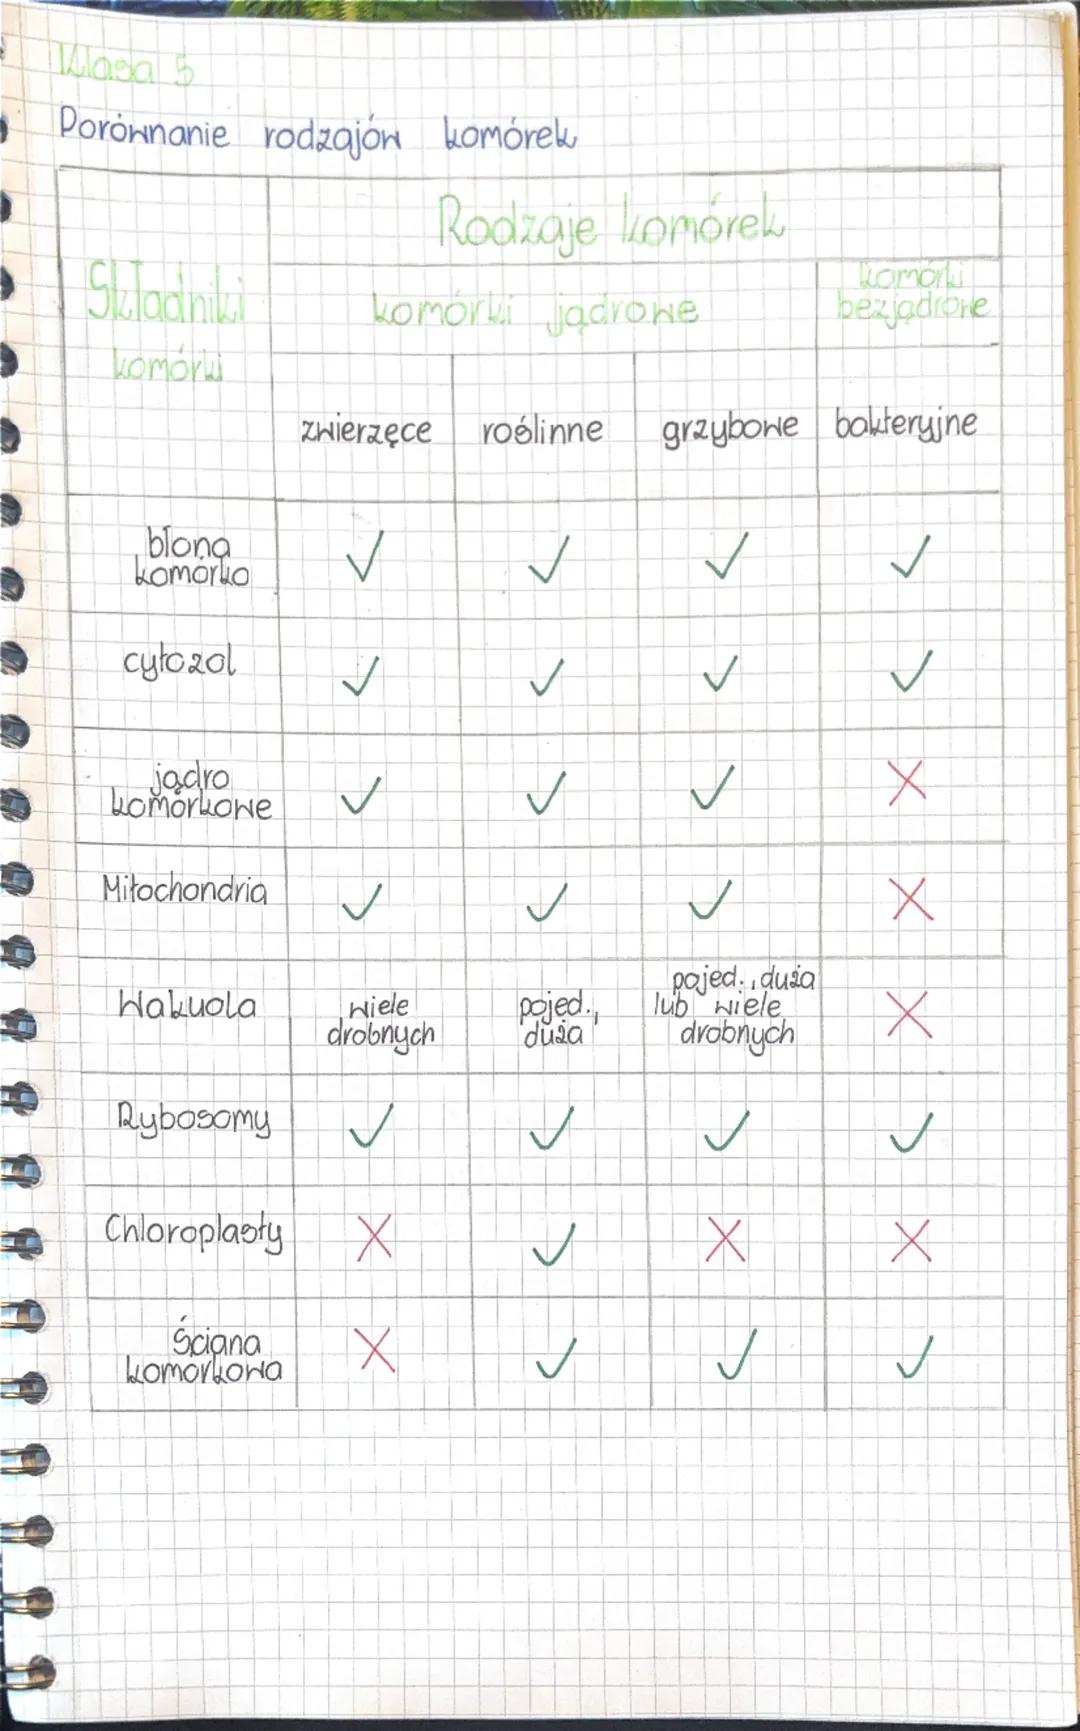 Klasa 5
Porównanie rodzajów komórek
Rodzaje komórek
Składniki
komórki
komórki jądrowe
komórki
bezjądrowe
zwierzęce roślinne grzybowe bakteryjne
błona
komórko ✓ ✓ ✓ ✓
cytozol ✓ ✓ ✓ ✓
jądro
komórkowe ✓ ✓ ✓ X
Mitochondria ✓ ✓ ✓ X
Wakuola
wiele
drobnych
pojed.,
duża
pojed., duża
lub wiele
drobnych
X
Rybosomy ✓ ✓ ✓ ✓
Chloroplasty X ✓ X X
Ściana
komorkowa X ✓ ✓ ✓